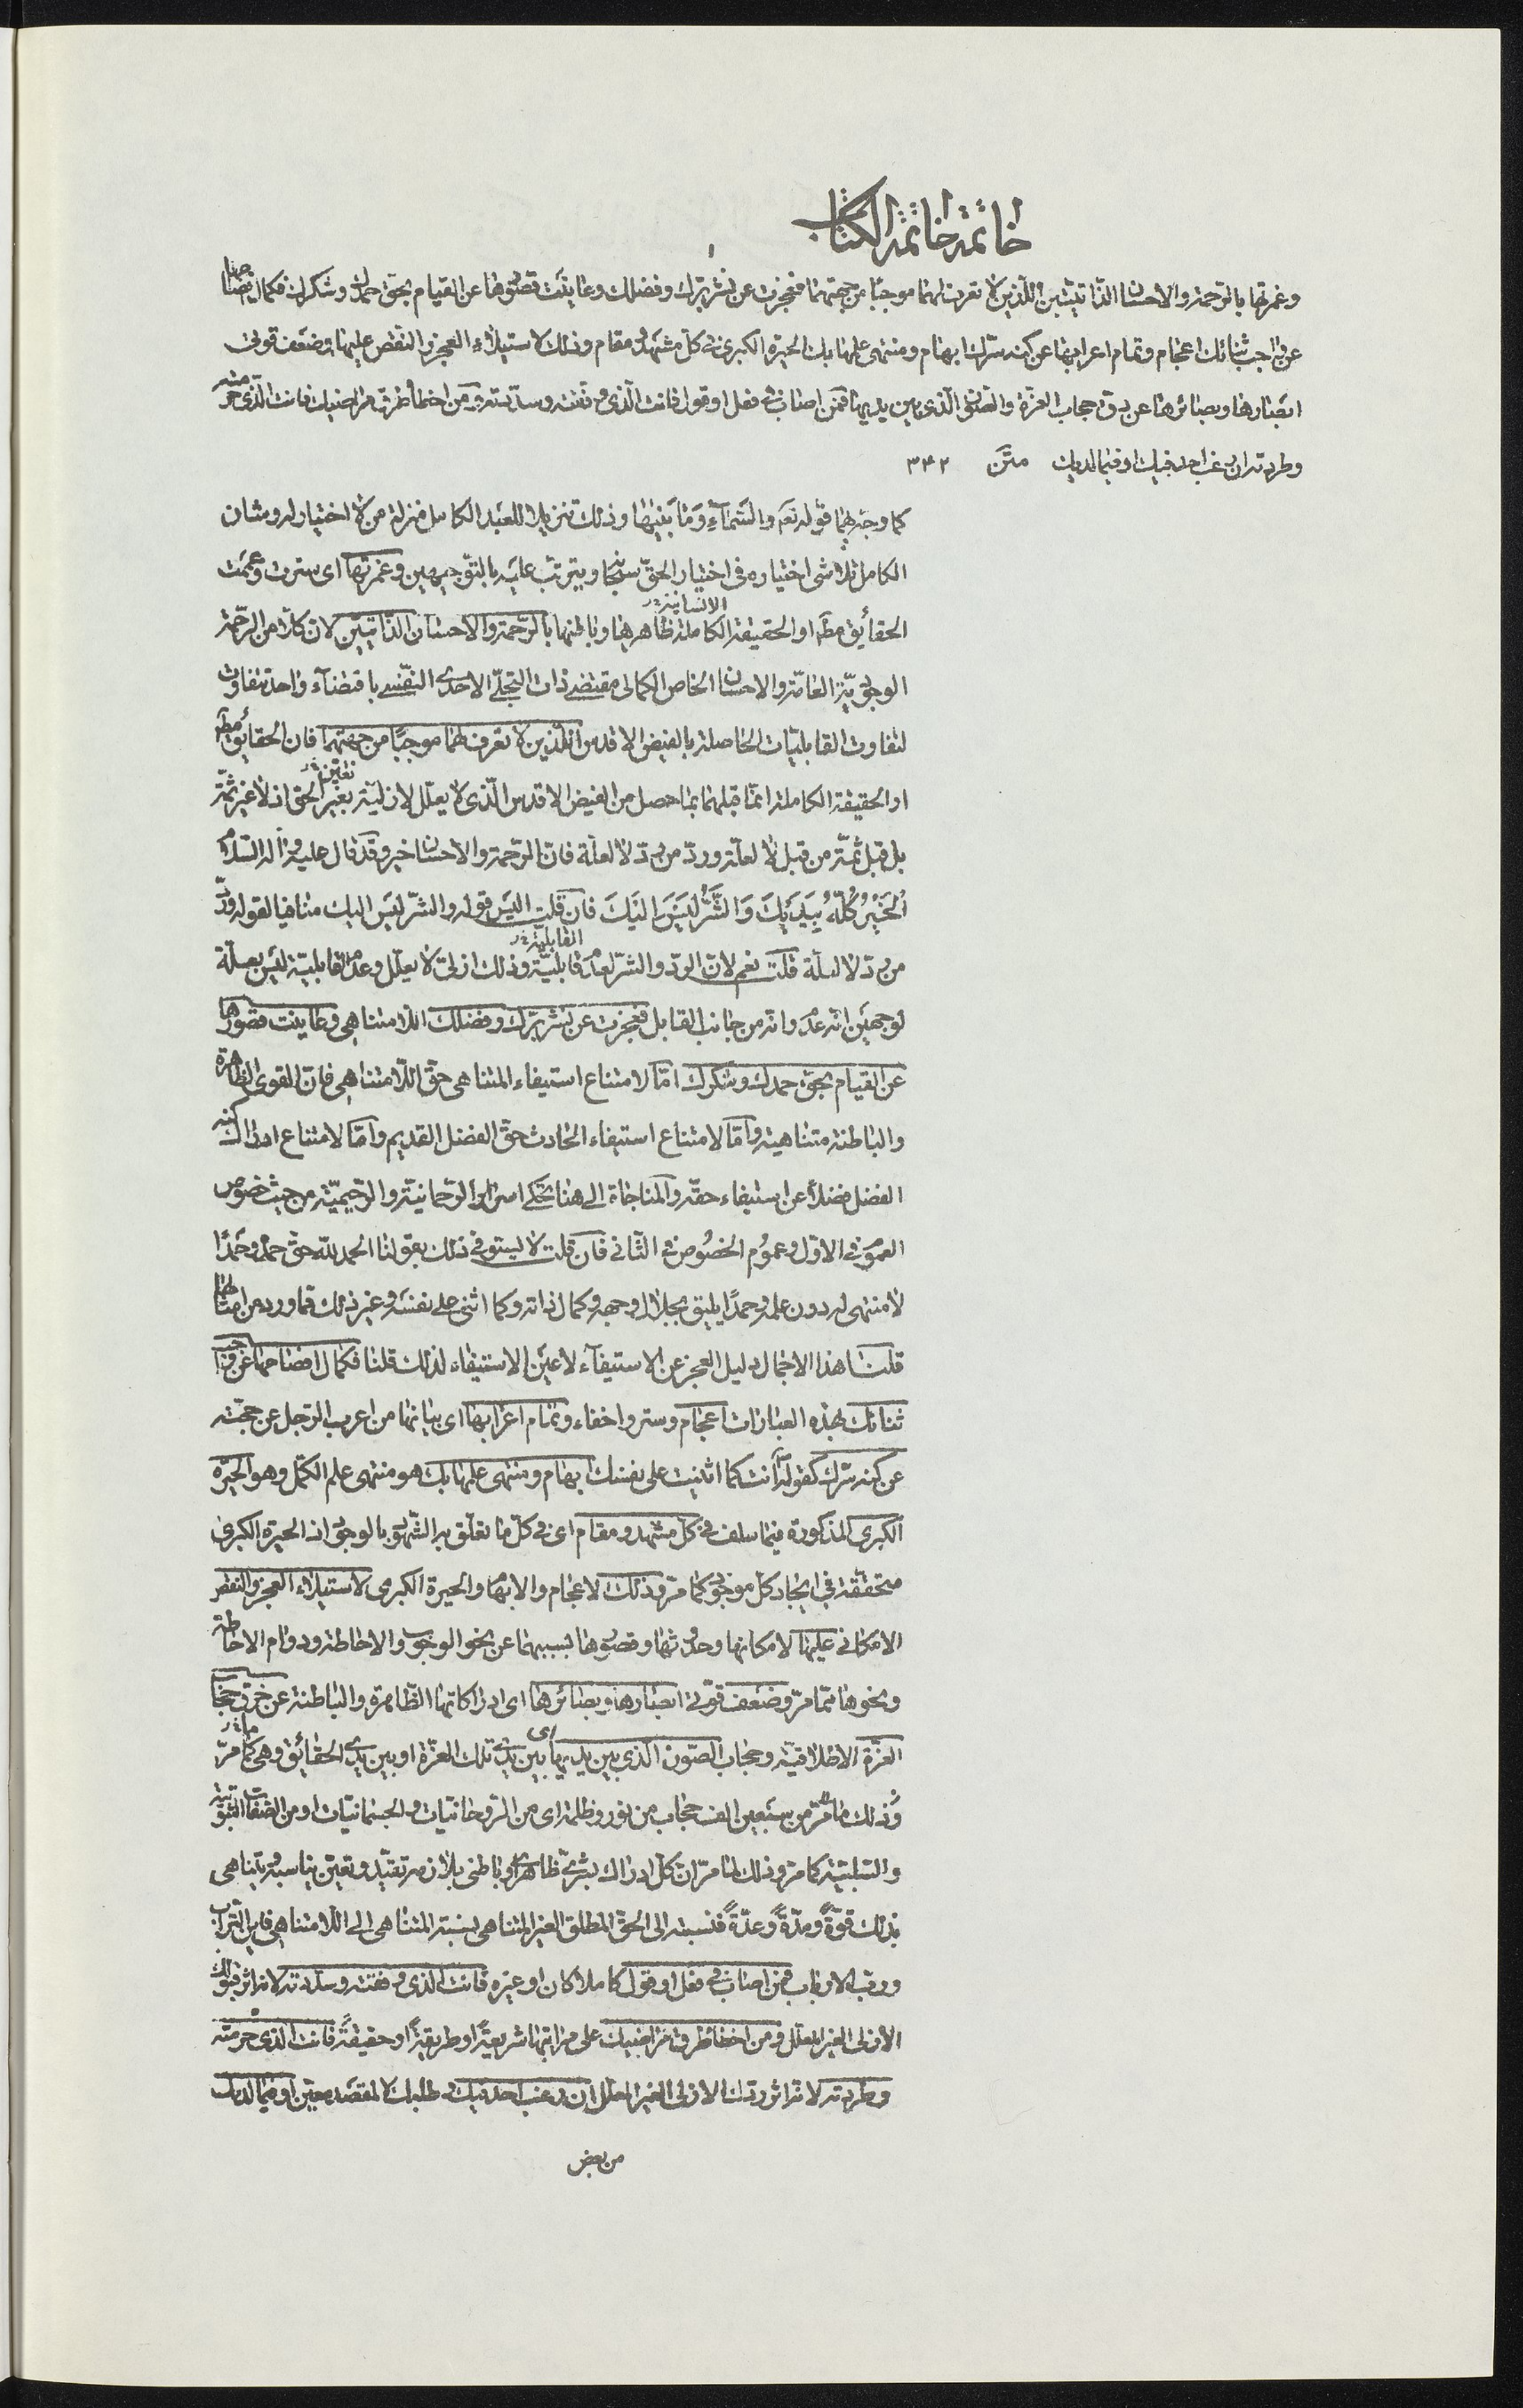 خاتمة خاتمة الكتاب
وغمرتها بالرحمة والاحسان الذاتيين اللذين لا تعرف لهما موجبا من جهتهما فعجزت عن نشر برك وفضلك وعاينت قصورها عن القيام بحق حمدك وشكرك فكمال افصاحها
عن واجب ثنائك اعجام وتمام اعرابها عن كنه سرك ابهام ومنتهى علمها بك الحيرة الكبرى فى كل مشهد ومقام وذلك لاستيلاء العجز والنقص عليها وضعف قوتى
ابصارها وبصائرها عن خرق حجاب العزة والصون الذى بين يديها فمن اصاب فى فعل او قول فانت الذى وفقته وسددته ومن اخطأ طرق مراضيك فانت الذى حرمته
وطردته ان رغب احد فيك او فيما لديك متن ٣٤٢
كما وجه بهما قوله تعم والسماء وما بينهما وذلك تنزيلا للعبد الكامل منزلة من لا اختيار له ومشان
الكامل تلاشى اختياره فى اختيار الحق سبحانه ويترتب عليه بالتوجيهين وغمرتها اى سترت وعممت
الحقائق مظ او الحقيقة الانسانية الكاملة ظاهرها وباطنها بالرحمة والاحسان الذاتيين لان كلا من الرحمة
الوجودية العامة والاحسان الخاص الكمالى مقتضى ذات التجلى الاحدى النفسى باقتضاء واحد متفاوت
لتفاوت القابليات الحاصلة بالفيض الاقدس اللذين لا تعرف لهما موجبا من جهتهما فان الحقائق مظ
او الحقيقة الكاملة انما قبلهما بما حصل من الفيض الاقدس الذى لا يعلل لازليته بغير تعين الحق اذ لا غير ثمة
بل قبل ثمة من قبل لا لعلة ورد من رد لا لعلة فان الرحمة والاحسان خير وقد قال عليه وآله السلام
الخير كله بيديك والشر ليس اليك فان قلت اليس قوله والشر ليس اليك منافيا لقوله ورد
من رد لا لعلة قلت نعم لان الرد والشر لعدم قابلية القابلية وذلك ازلى لا يعلل وعدم القابلية ليس بعلة
لوجهين انه عدم وانه من جانب القابل فعجزت عن نشر برك وفضلك اللامتناهى وعاينت قصورها
عن القيام بحق حمدك وشكرك اما لامتناع استيفاء المتناهى حق اللامتناهى فان القوى الظاهرة
والباطنة متناهية واما لامتناع استيفاء الحادث حق الفضل القديم واما لامتناع ادراك كنه
الفضل فضلا عن استيفاء حقه والمناجاة الى هنا تحكى اسرار الرحمانية والرحيمية من حيث خصوص
العموم فى الاول وعموم الخصوص فى الثانى فان قلت لا يستوفى ذلك بقولنا الحمد لله حق حمده وحمدا
لا منتهى له دون علمه وحمدا يليق بجلال وجهه وكمال ذاته وكما اثنى على نفسه وغير ذلك فما ورد من امثالها
قلنا هذا الاجمال دليل العجز عن الاستيفاء لا عين الاستيفاء لذلك قلنا فكمال افصاحها عن واجب
ثنائك بهذه العبارات اعجام وستر واخفاء وتمام اعرابها اى بيانها من اعرب الرجل عن حجته
عن كنه سرك كقوله انت كما اثنيت على نفسك ابهام ومنتهى علمها بك هو منتهى علم الكمل وهو الحيرة
الكبرى المذكورة فيما سلف فى كل مشهد ومقام اى فى كل ما تعلق به الشهود بالوجود اذ الحيرة الكبرى
متحققة فى ايجاد كل موجود كما مر وذلك الاعجام والابهام والحيرة الكبرى لاستيلاء العجز والنقص
الامكانى عليها لامكانها وحدوثها وقصورها بسببهما عن نحو الوجوب والاحاطة ودوام الاحاطة
ونحوها مما مر وضعف قوتى ابصارها وبصائرها اى ادراكاتها الظاهرة والباطنة عن خرق حجاب
العزة الاطلاقية وحجاب الصون الذى بين يديها اى بين يدى تلك العزة او بين يدى الحقائق وهى كما مر
وذلك ما مر من سبعين الف حجاب من نور وظلمة اى من الروحانيات والجسمانيات او من الصفات الثبوتية
والسلبية كما مر وذلك لما مر ان كل ادراك بشرى ظاهرى وباطنى يلازمه تقيد وتعين يناسبه ويتناهى
بذلك قوة ومدة وعدة فنسبته الى الحق المطلق الغير المتناهى نسبة المتناهى الى اللامتناهى فاين التراب
ورب الارباب فمن اصاب فى فعل او قول كاملا كان او غيره فانت الذى وفقته وسددته لانه اثر قبولك
الازلى الغير المعلل ومن اخطأ طرق مراضيك على مراتبها شريعة او طريقة او حقيقة فانت الذى حرمته
وطردته لانه اثر ردك الازلى الغير المعلل ان رغب احد فيك وطلبك لا لمقصد معين او فيما لديك
من بعض